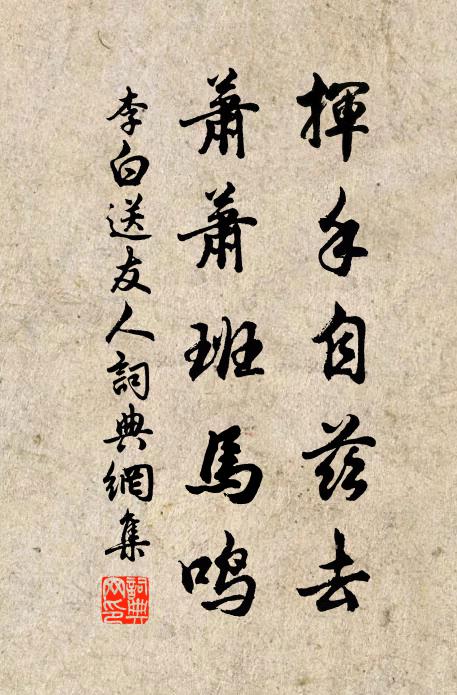 揮手自茲去
蕭蕭班馬鳴
李白送友人詞典網集
詞典网印